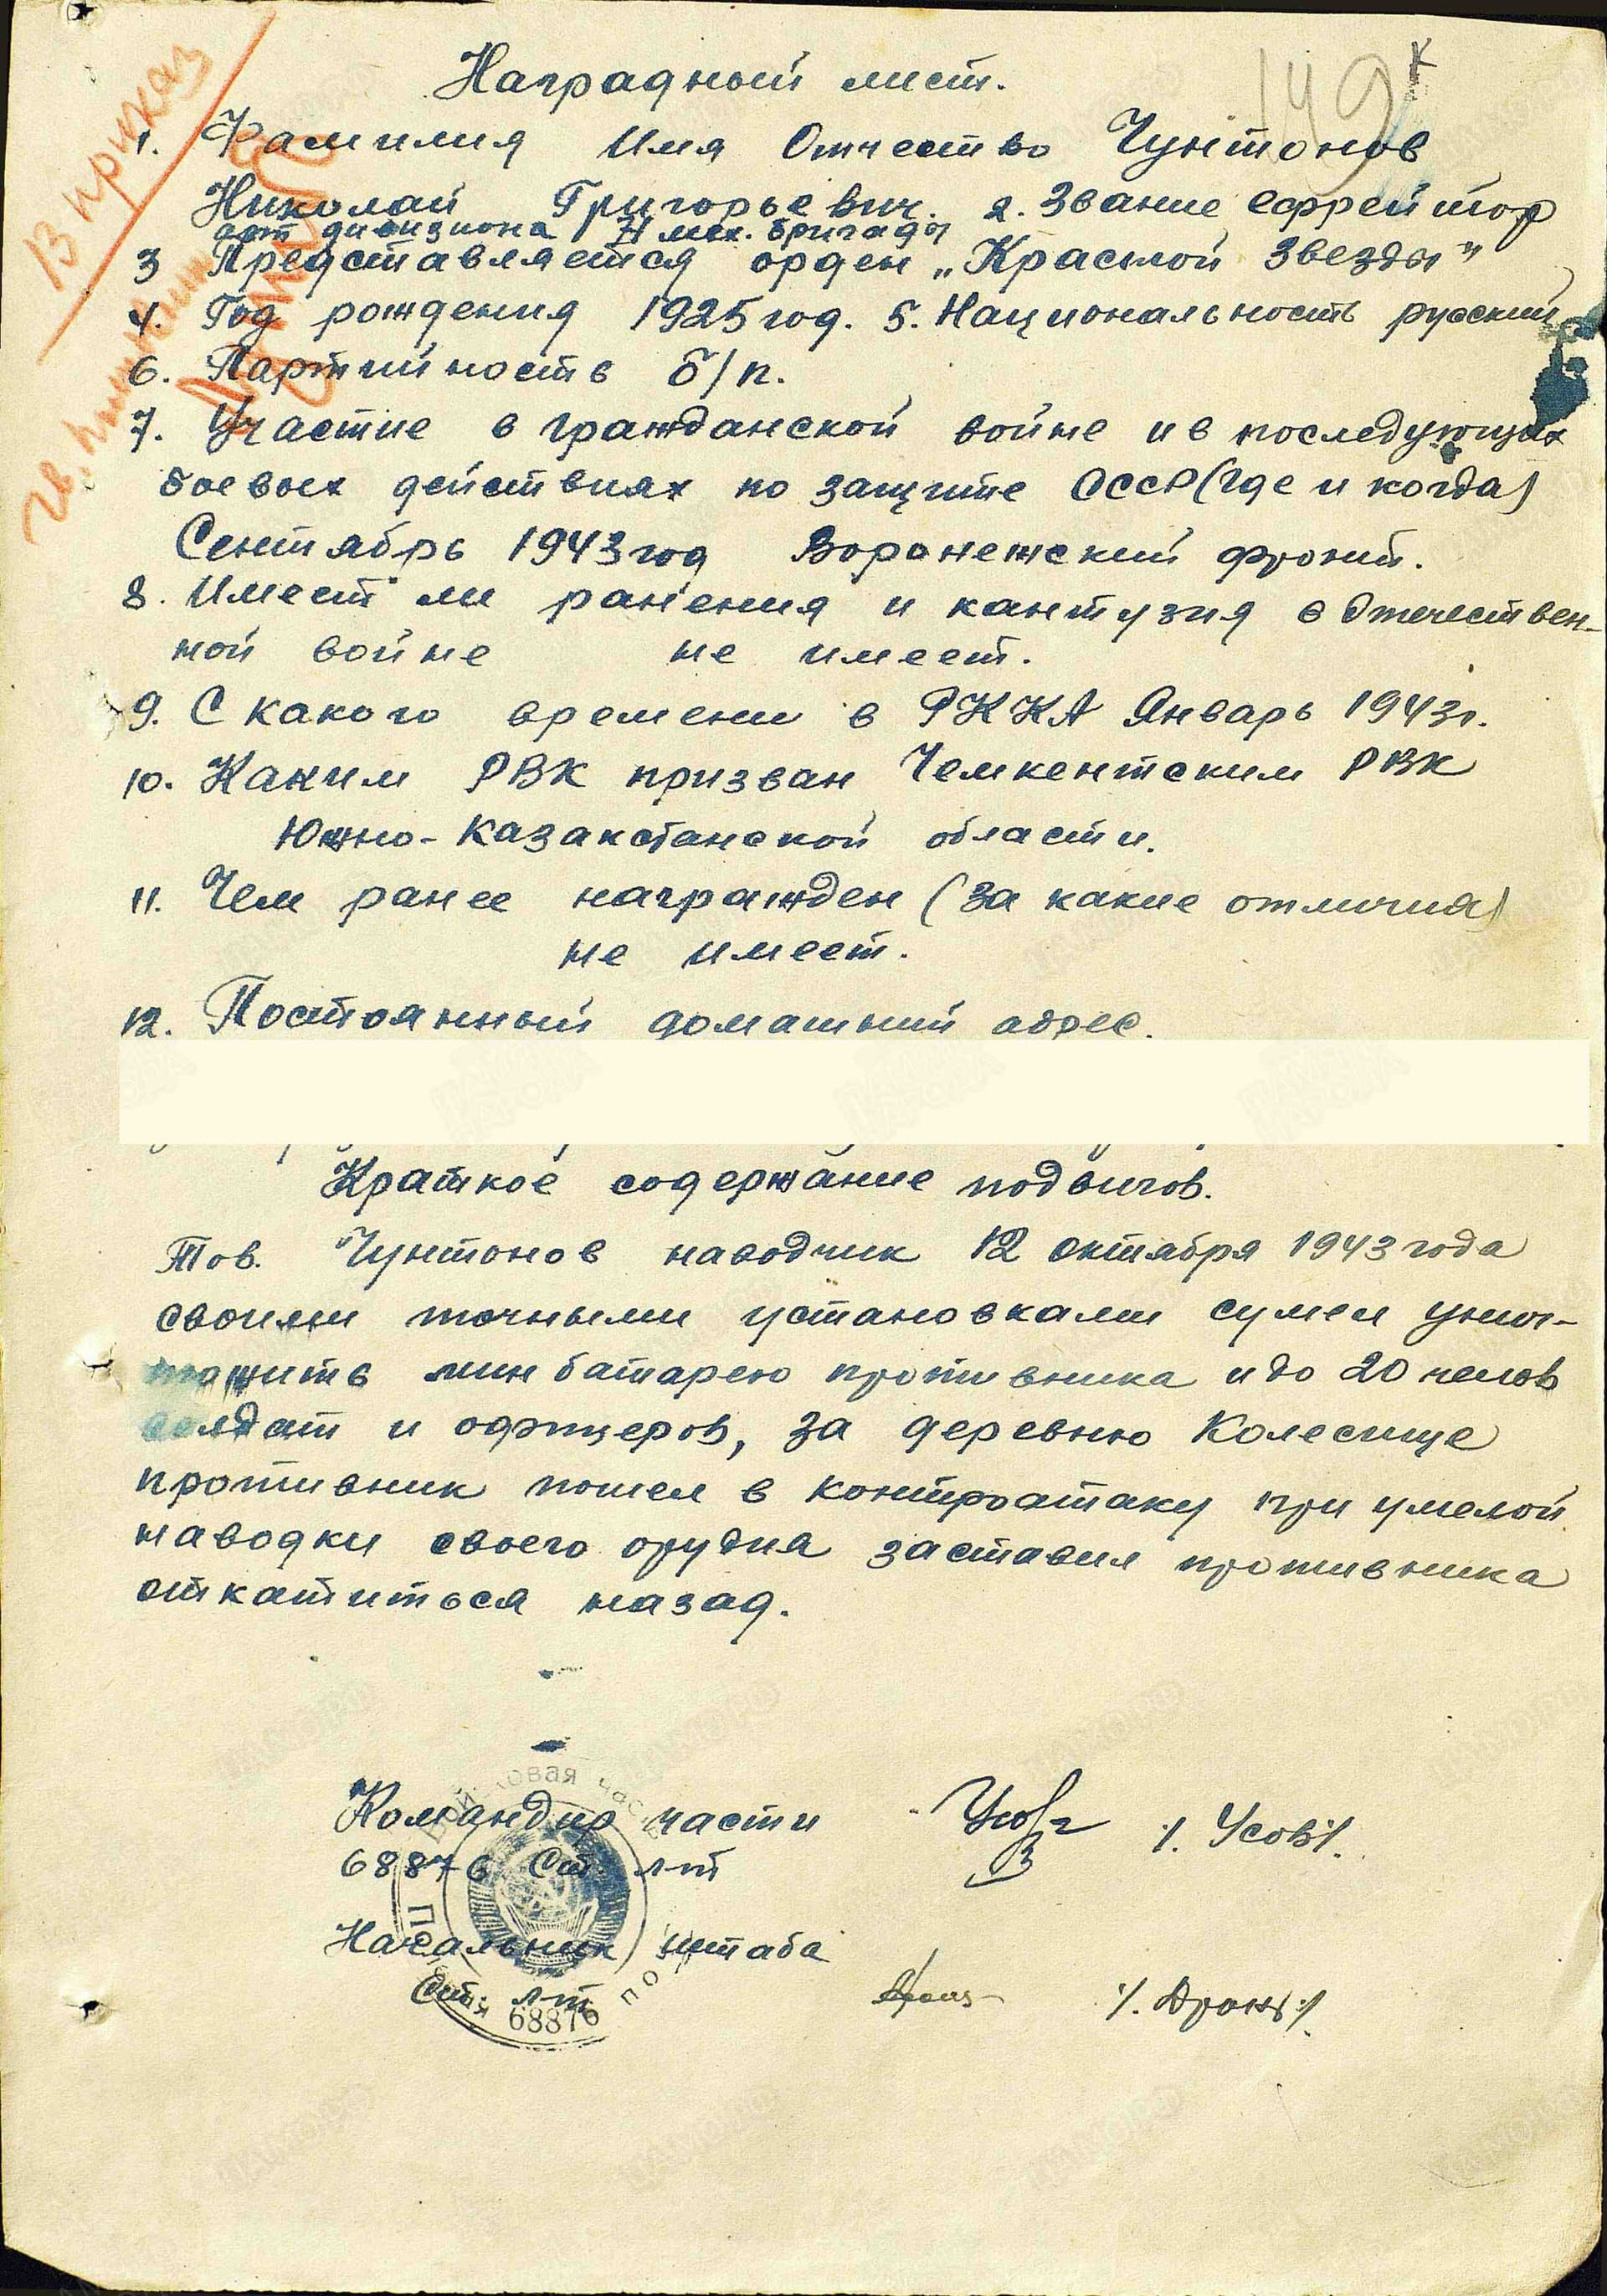 Наградный лист.
149
В приказ
1. Фамилия Имя Отчество Чунтонов
Николай Григорьевич. 2. Звание ефрейтор
арт дивизиона 71 мех. бригады
3 Представляется орден „Красной Звезды"
4. Год рождения 1925 год. 5. Национальность русский
6. Партийность б/п.
7. Участие в гражданской войне и в последующих
боевых действиях по защите СССР (где и когда)
Сентябрь 1943 год Воронежский фронт.
8. Имеет ли ранения и кантузия в Отечествен-
ной войне не имеет.
9. С какого времени в РККА Январь 1943г.
10. Каким РВК призван Чемкентским РВК
Южно-Казакстанской области.
11. Чем ранее награжден (за какие отличия)
не имеет.
12. Постоянный домашний адрес.
Краткое содержание подвигов.
Тов. Чунтонов наводчик 12 октября 1943 года
своими точными установками сумел унич-
тожить мин батарею противника и до 20 челов
солдат и офицеров, за деревню Колесище
противник пошел в контратаку при умелой
наводки своего орудия заставил противника
откатиться назад.
Командир части
68876 Ст. л-т /. Усов/.
Начальник штаба
Ст. л-т
войсковая часть
68876